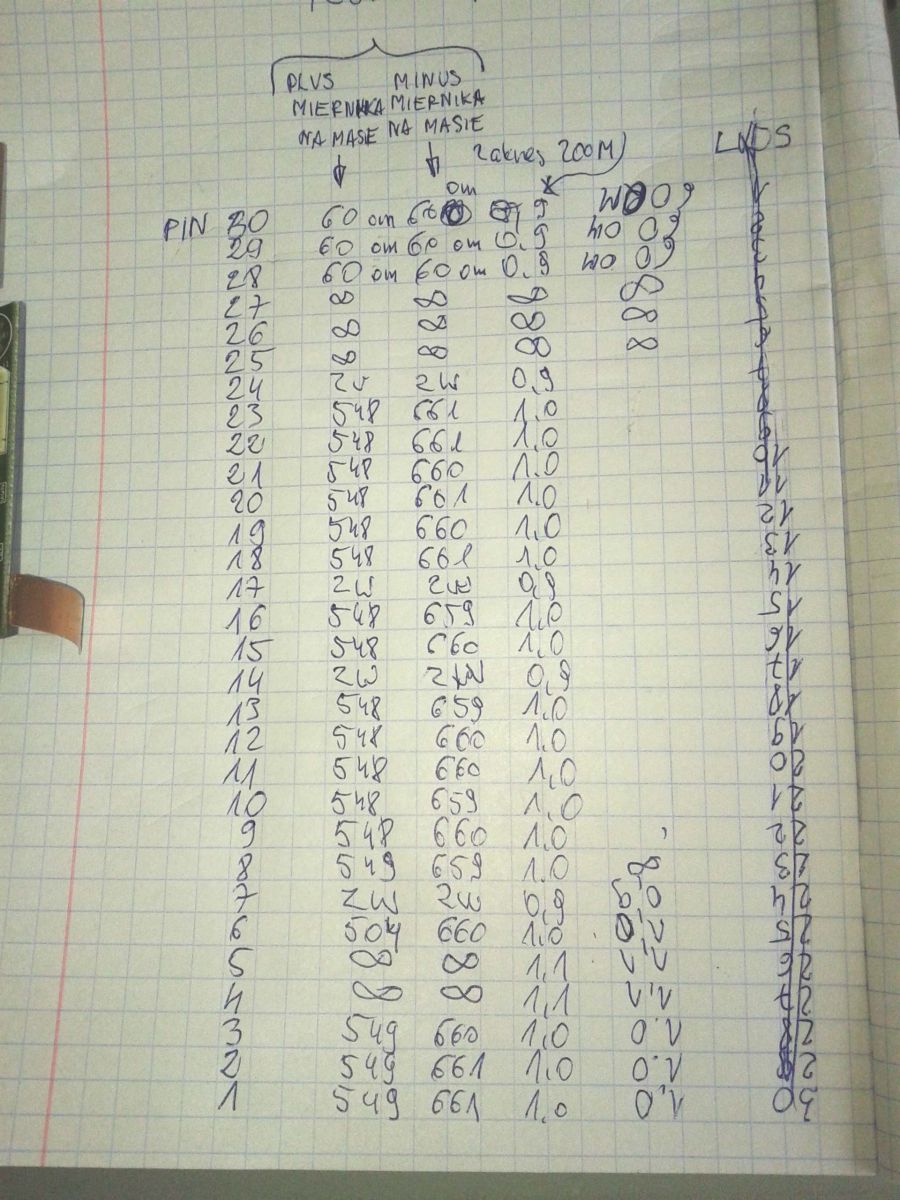 PLUS MINUS
MIERNIKA MIERNIKA
NA MASIE NA MASIE
zakres 200M
LVDS
om
PIN 30 60 om 60 0,9 60 om
29 60 om 60 om 0,9 60 om
28 60 om 60 om 0,9 60 om
27 ∞ ∞ ∞ ∞
26 ∞ ∞ ∞ ∞
25 ∞ ∞ ∞ ∞
24 zw zw 0,9
23 548 661 1,0
22 548 661 1,0 10
21 548 660 1,0 11
20 548 661 1,0 12
19 548 660 1,0 13
18 548 661 1,0 14
17 zw zw 0,9 15
16 548 659 1,0 16
15 548 660 1,0 17
14 zw zw 0,9 18
13 548 659 1,0 19
12 548 660 1,0 20
11 548 660 1,0 21
10 548 659 1,0 22
9 548 660 1,0 23
8 549 659 1,0 ∞ 24
7 zw zw 0,9 0,9 25
6 504 660 1,0 1,0 26
5 ∞ ∞ 1,1 1,1 27
4 ∞ ∞ 1,1 1,1
3 549 660 1,0 1,0
2 549 661 1,0 1,0
1 549 661 1,0 1,0 30